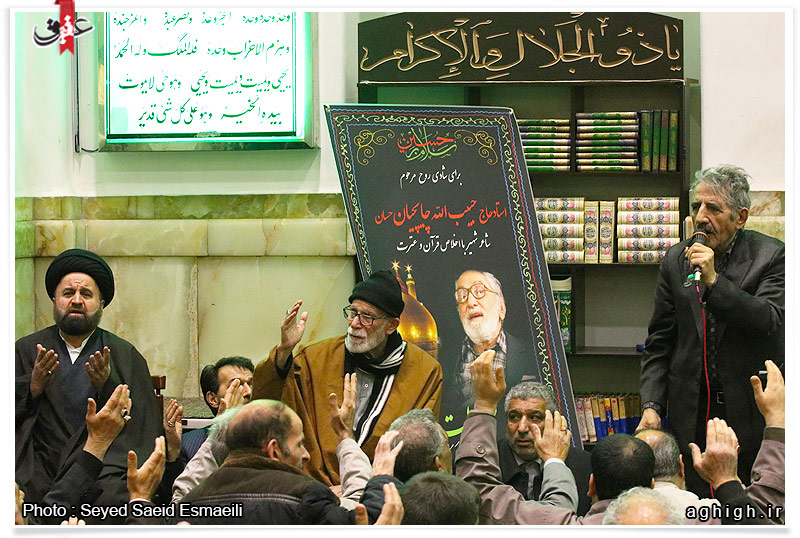 عقیق
وحده وحده وحده
وهزم الاحزاب وحده فله الملک وله الحمد
یحیی و یمیت و یمیت و یحیی وهو حی لایموت
بیده الخیر وهو علی کل شئ قدیر
یا ذو الجلال و الإکرام
حسین
برای شادی روح مرحوم
استاد حاج حبیب الله چایچیان حسان
شاعر شهیر با اخلاص قرآن و عترت
Photo : Seyed Saeid Esmaeili
aghigh.ir